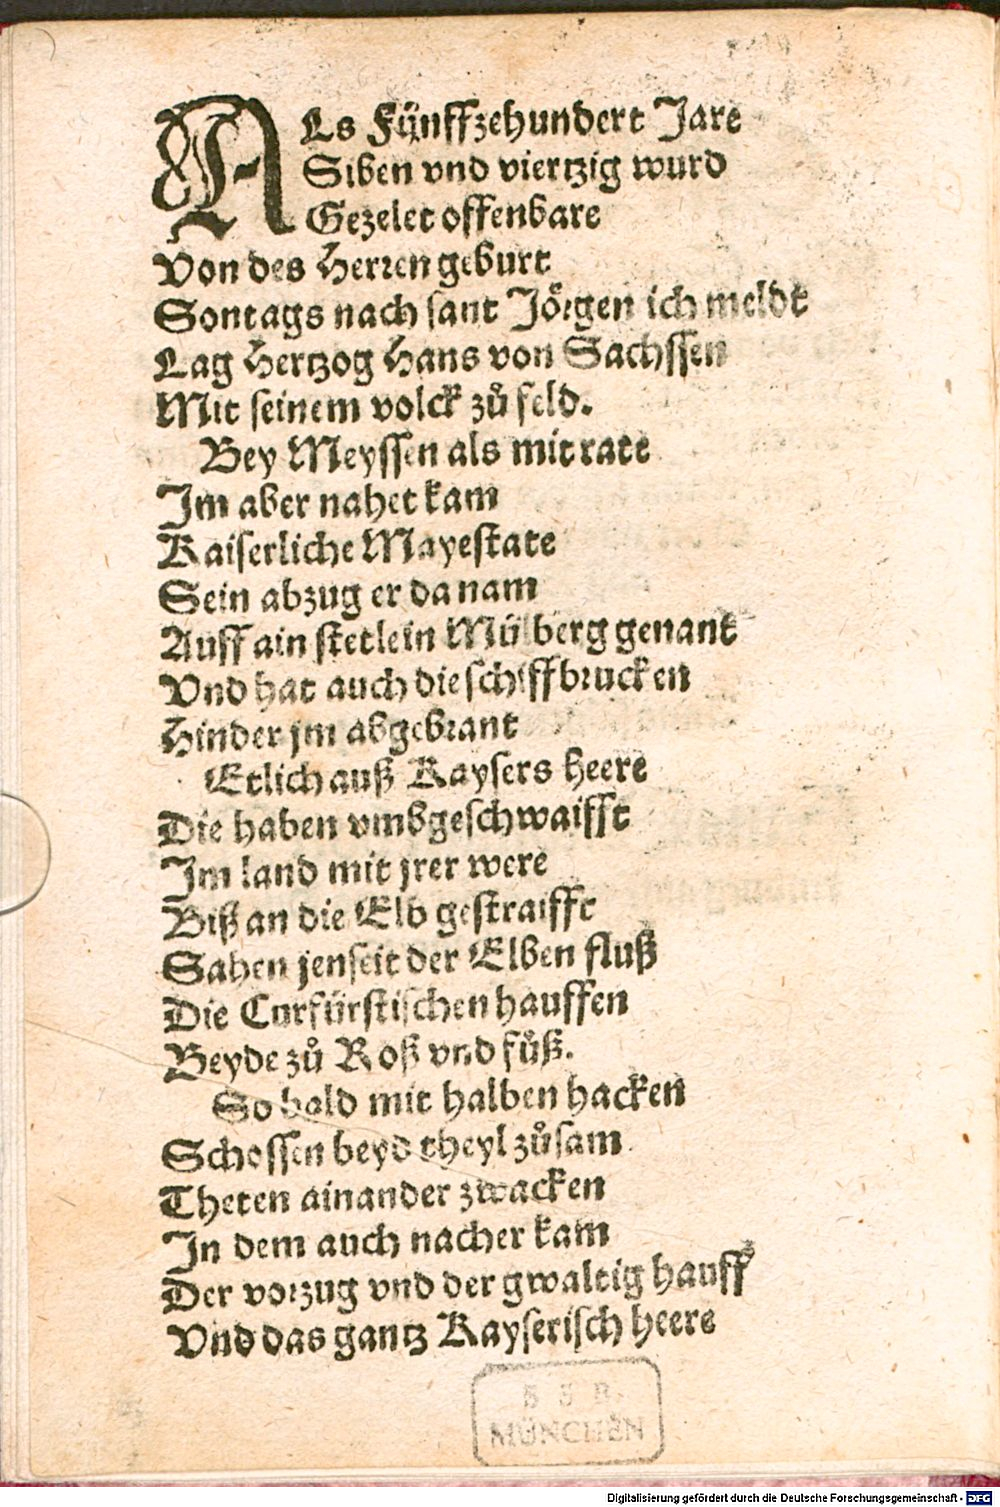 ALs Fünffzehundert Jare
Siben vnd viertzig wurd
Gezelet offenbare
Von des Herren geburt
Sontags nach sant Jörgen ich meldt
Lag Hertzog Hans von Sachssen
Mit seinem volck zů feld.
Bey Meyssen als mit rate
Im aber nahet kam
Kaiserliche Mayestate
Sein abzug er da nam
Auff ain stetlein Mülberg genant
Vnd hat auch die schiffbrucken
Hinder jm abgebrant
Etlich auß Kaysers heere
Die haben vmbgeschwaifft
Im land mit jrer were
Biß an die Elb gestraifft
Sahen jenseit der Elben fluß
Die Curfürstischen hauffen
Beyde zů Roß vnd fůß.
So bald mit halben hacken
Schossen beyd theyl zůsam
Theten ainander zwacken
In dem auch nacher kam
Der vorzug vnd der gwaltig hauff
Vnd das gantz Kayserisch heere
MÜNCHEN
Digitalisierung gefördert durch die Deutsche Forschungsgemeinschaft - DFG